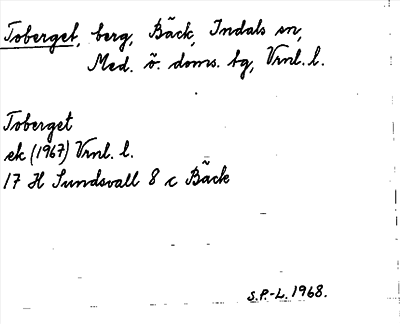 Toberget, berg, Bäck, Indals sn,
Med. ö. doms. tg, Vrnl. l.
Toberget
ek (1967) Vrnl. l.
17 H Sundsvall 8 c Bäck
S.P.-L. 1968.